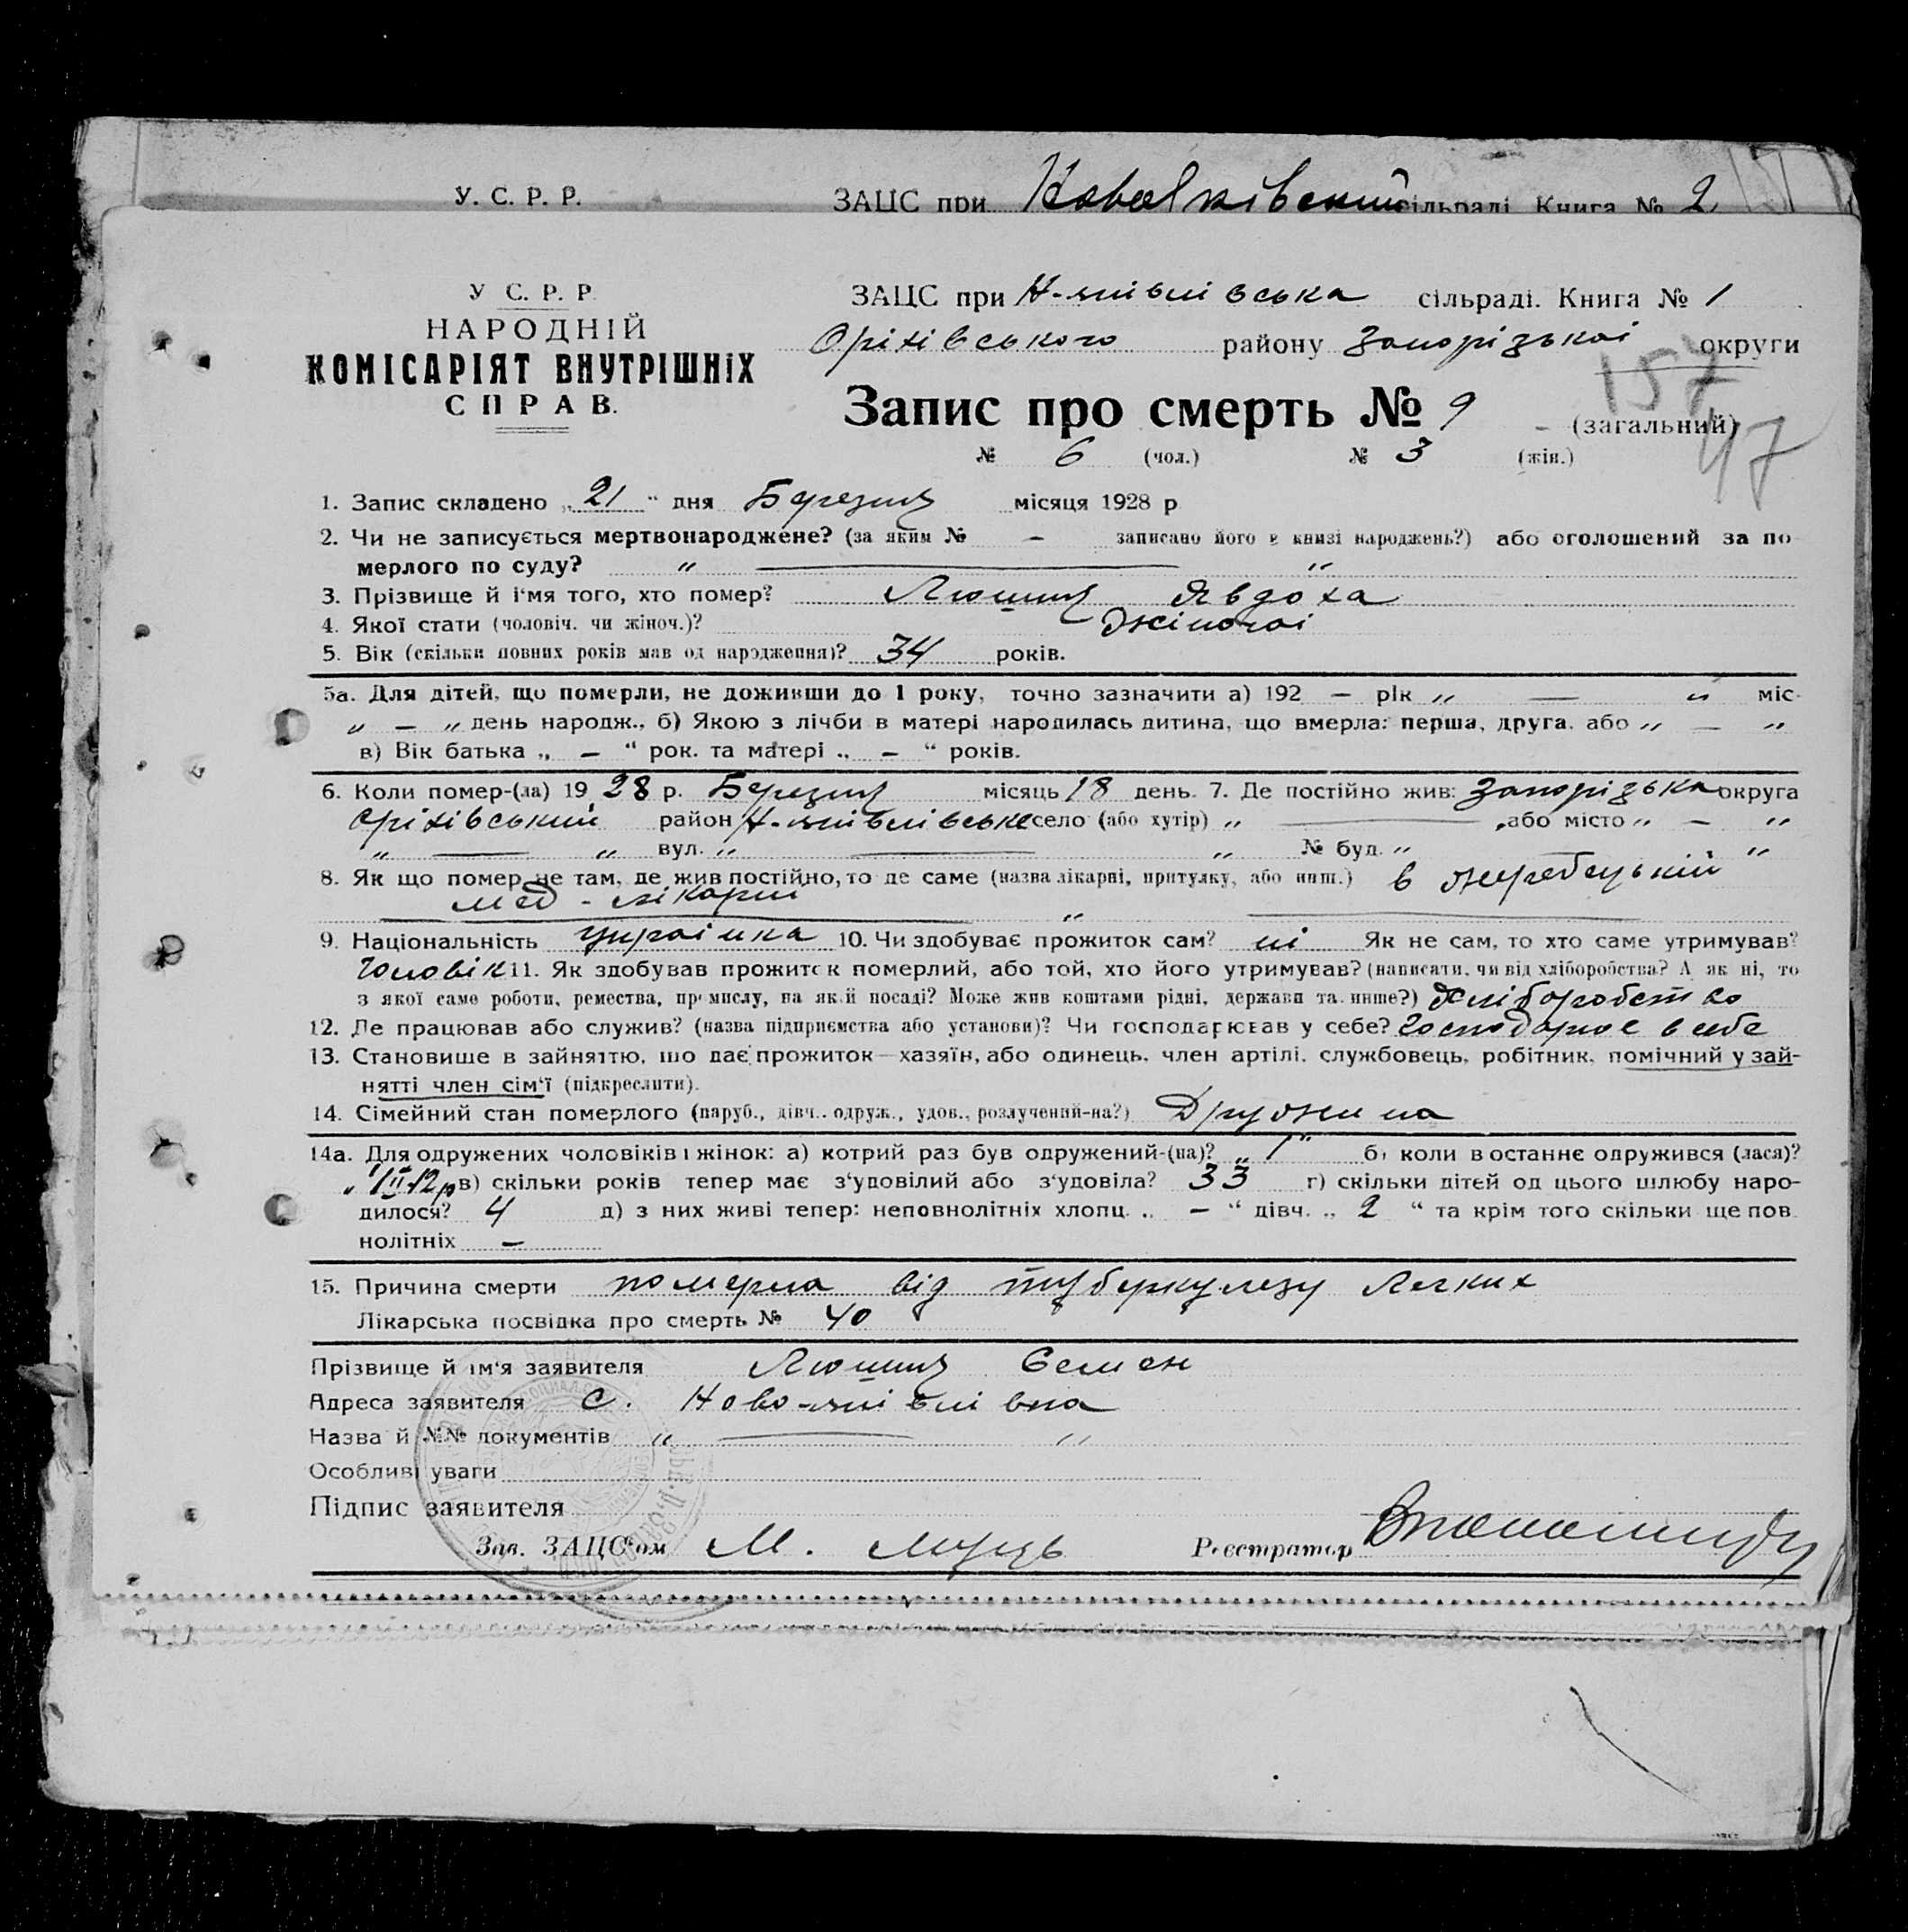 У. С. Р. Р.
ЗАЦС при сільраді Книга № 2
У С. Р. Р
НАРОДНІЙ
КОМІСАРІЯТ ВНУТРІШНІХ
СПРАВ.
ЗАЦС при сільраді. Книга № 1
Оріхівського району Запорізької округи
157
Запис про смерть № 9 - (загальний)
47
№ 6 (чол.) № 3 (жін.)
1. Запис складено „ 21 “ дня Березня місяця 1928 р
2. Чи не записується мертвонароджене? (за яким № - записано його в книзі народжень?) або оголошений за по
мерлого по суду? „ — „
3. Прізвище й і‘мя того, хто помер? Люшня Явдоха
4. Якої стати (чоловіч. чи жіноч.)? Жіночої
5. Вік (скільки повних років мав од народження)? 34 років.
5а. Для дітей, що померли, не доживши до 1 року, точно зазначити а) 192 — рік „ — „ міс-
„ — „ день народж., б) Якою з лічби в матері народилась дитина, що вмерла: перша, друга. або „ — „
в) Вік батька „ — “ рок. та матері „ — “ років.
6. Коли помер-(ла) 19 28 р. Березня місяць 18 день. 7. Де постійно жив: Запорізька округа
Оріхівський район село (або хутір) „ — „ або місто „ — „
„ — „ вул. „ — „ № буд. „ — „
8. Як що помер не там, де жив постійно, то де саме (назва лікарні, притулку, або инш.) в Жеребецькій
мед-лікарні
„
9. Національність Українка 10. Чи здобуває прожиток сам? ні Як не сам, то хто саме утримував?
Чоловік 11. Як здобував прожиток померлий, або той, хто його утримував? (написати, чи від хліборобства? А як ні, то
з якої саме роботи, ремества, промислу, на якій посаді? Може жив коштами рідні, держави та инше?) Хліборобство
12. Де працював або служив? (назва підприємства або установи)? Чи господарював у себе? Господарює в себе
13. Становище в зайняттю, що дає прожиток—хазяїн, або одинець, член артілі, службовець, робітник, помічний у зай-
нятті член сім‘ї (підкреслити).
14. Сімейний стан померлого (паруб., дівч., одруж., удов., розлучений-на?) Дружина
14а. Для одружених чоловіків і жінок: а) котрий раз був одружений-(на)? „ 1 “ б) коли востаннє одружився (лася)?
в) скільки років тепер має з‘удовілий або з‘удовіла? 33 г) скільки дітей од цього шлюбу наро-
дилося? 4 д) з них живі тепер: неповнолітніх хлопц. „ — “ дівч. „ 2 “ та крім того скільки ще пов
нолітніх —
15. Причина смерти померла від туберкулезу легких
Лікарська посвідка про смерть № 40
Прізвище й ім‘я заявителя Люшня Семен
Адреса заявителя с. Ново-
Назва й №№ документів „ — „
Особливі уваги
Підпис заявителя
Зав. ЗАЦС‘ом М. Реєстратор